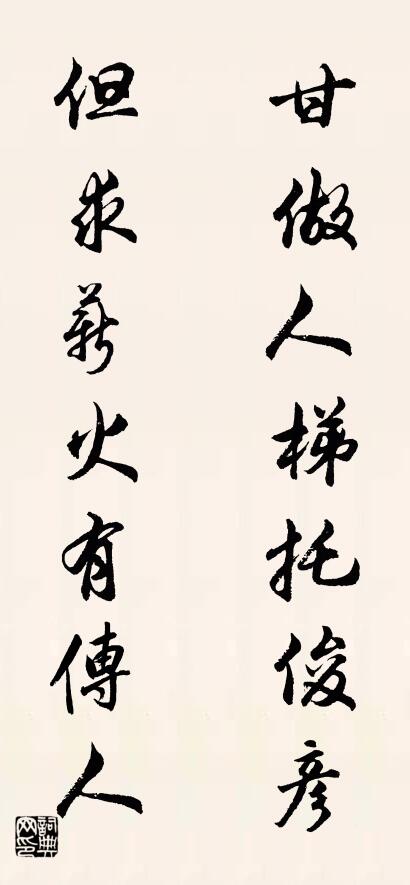 甘做人梯托俊彦
但求薪火有傳人
詞典网印